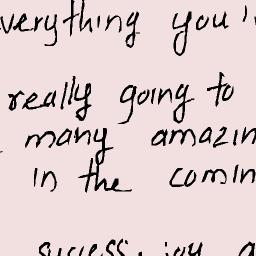 verything you'
really going to
many amazin
in the comin
success, joy a